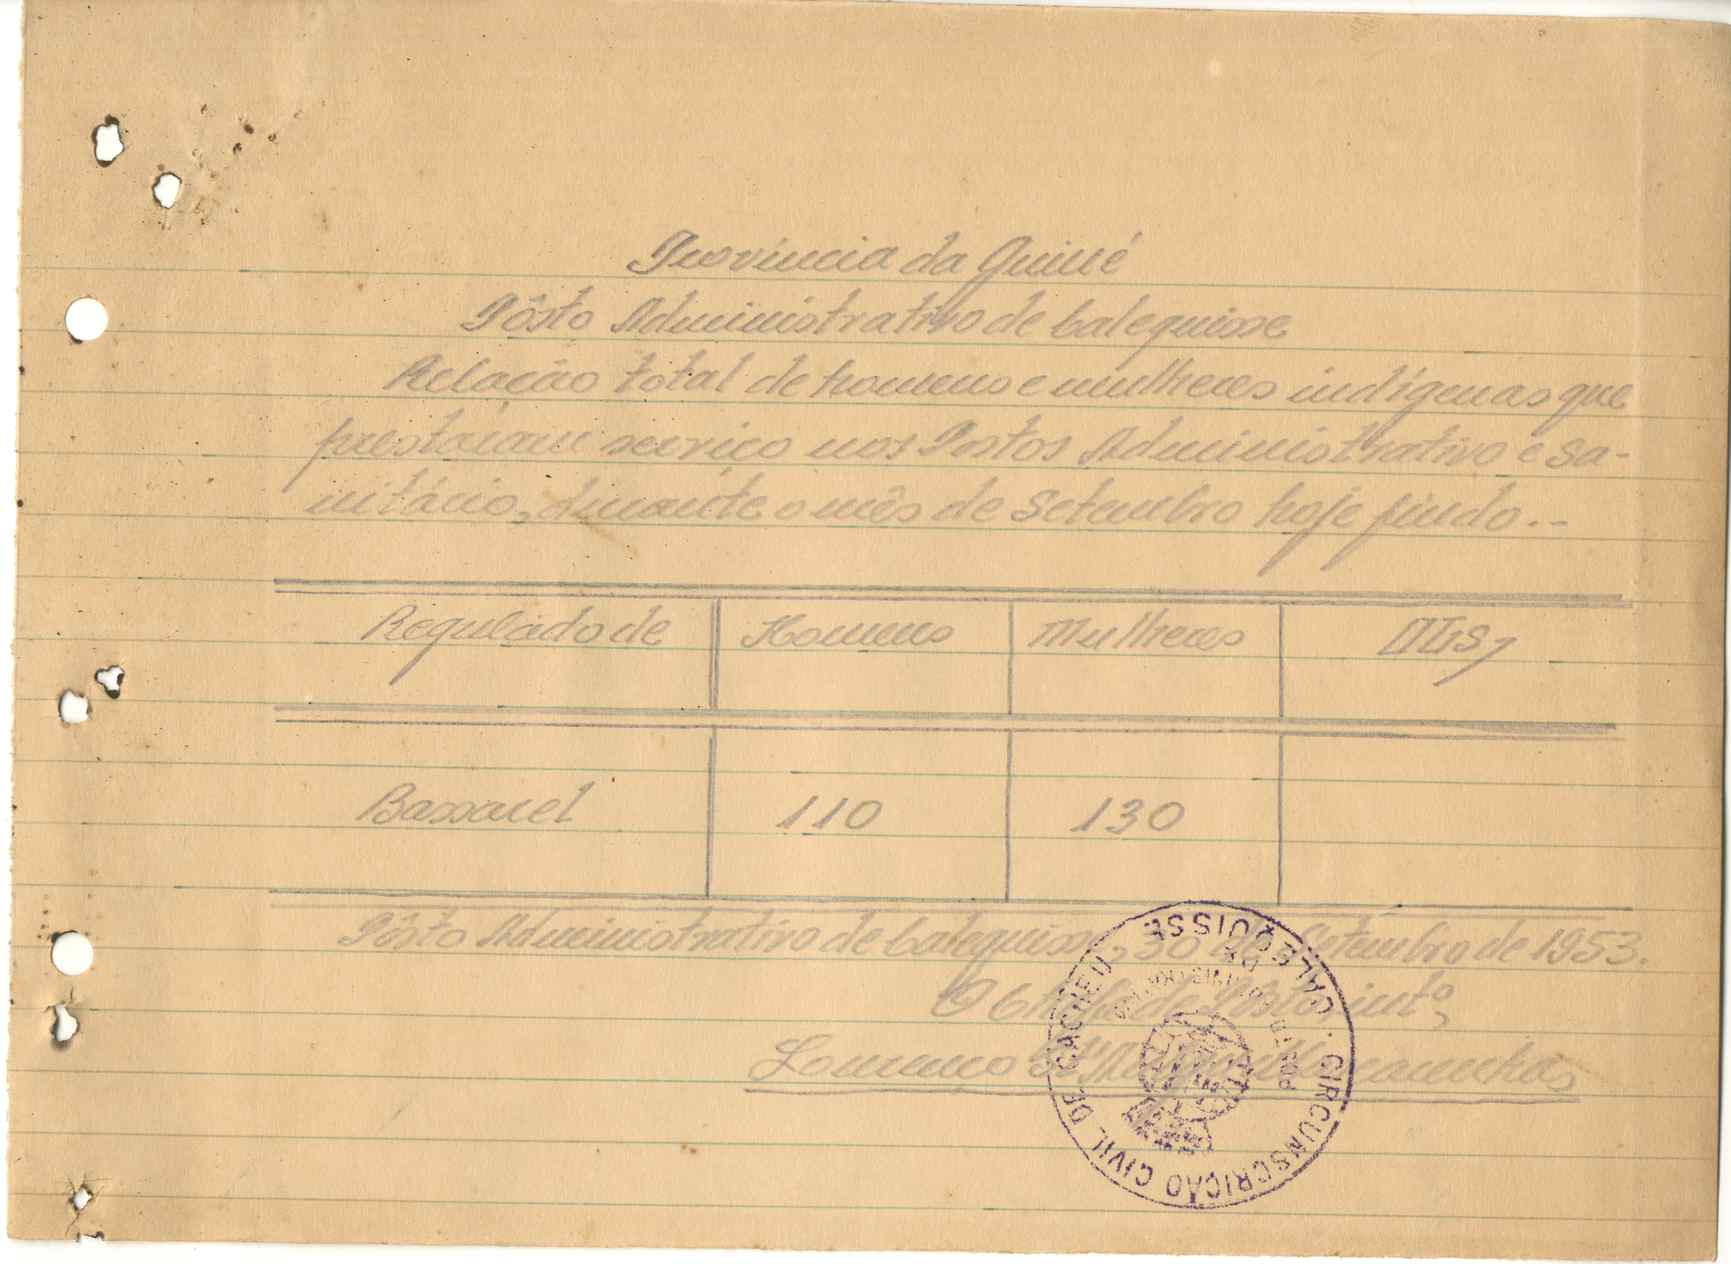 Província da Guiné
Pôsto Administrativo de Calequisse
Relação total de homens e mulheres indígenas que
prestaram serviço nos Postos Administrativo e Sa-
nitário, durante o mês de Setembro hoje findo..
Regulado de Homens Mulheres
Bassarel 110 130
Pôsto Administrativo de Calequisse, 30 de Setembro de 1953.
O Chefe de Posto, intº,
Lourenço
CIRCUNSCRIÇÃO CIVIL DE CACHEU
POSTO ADMINISTRATIVO DE CALEQUISSE